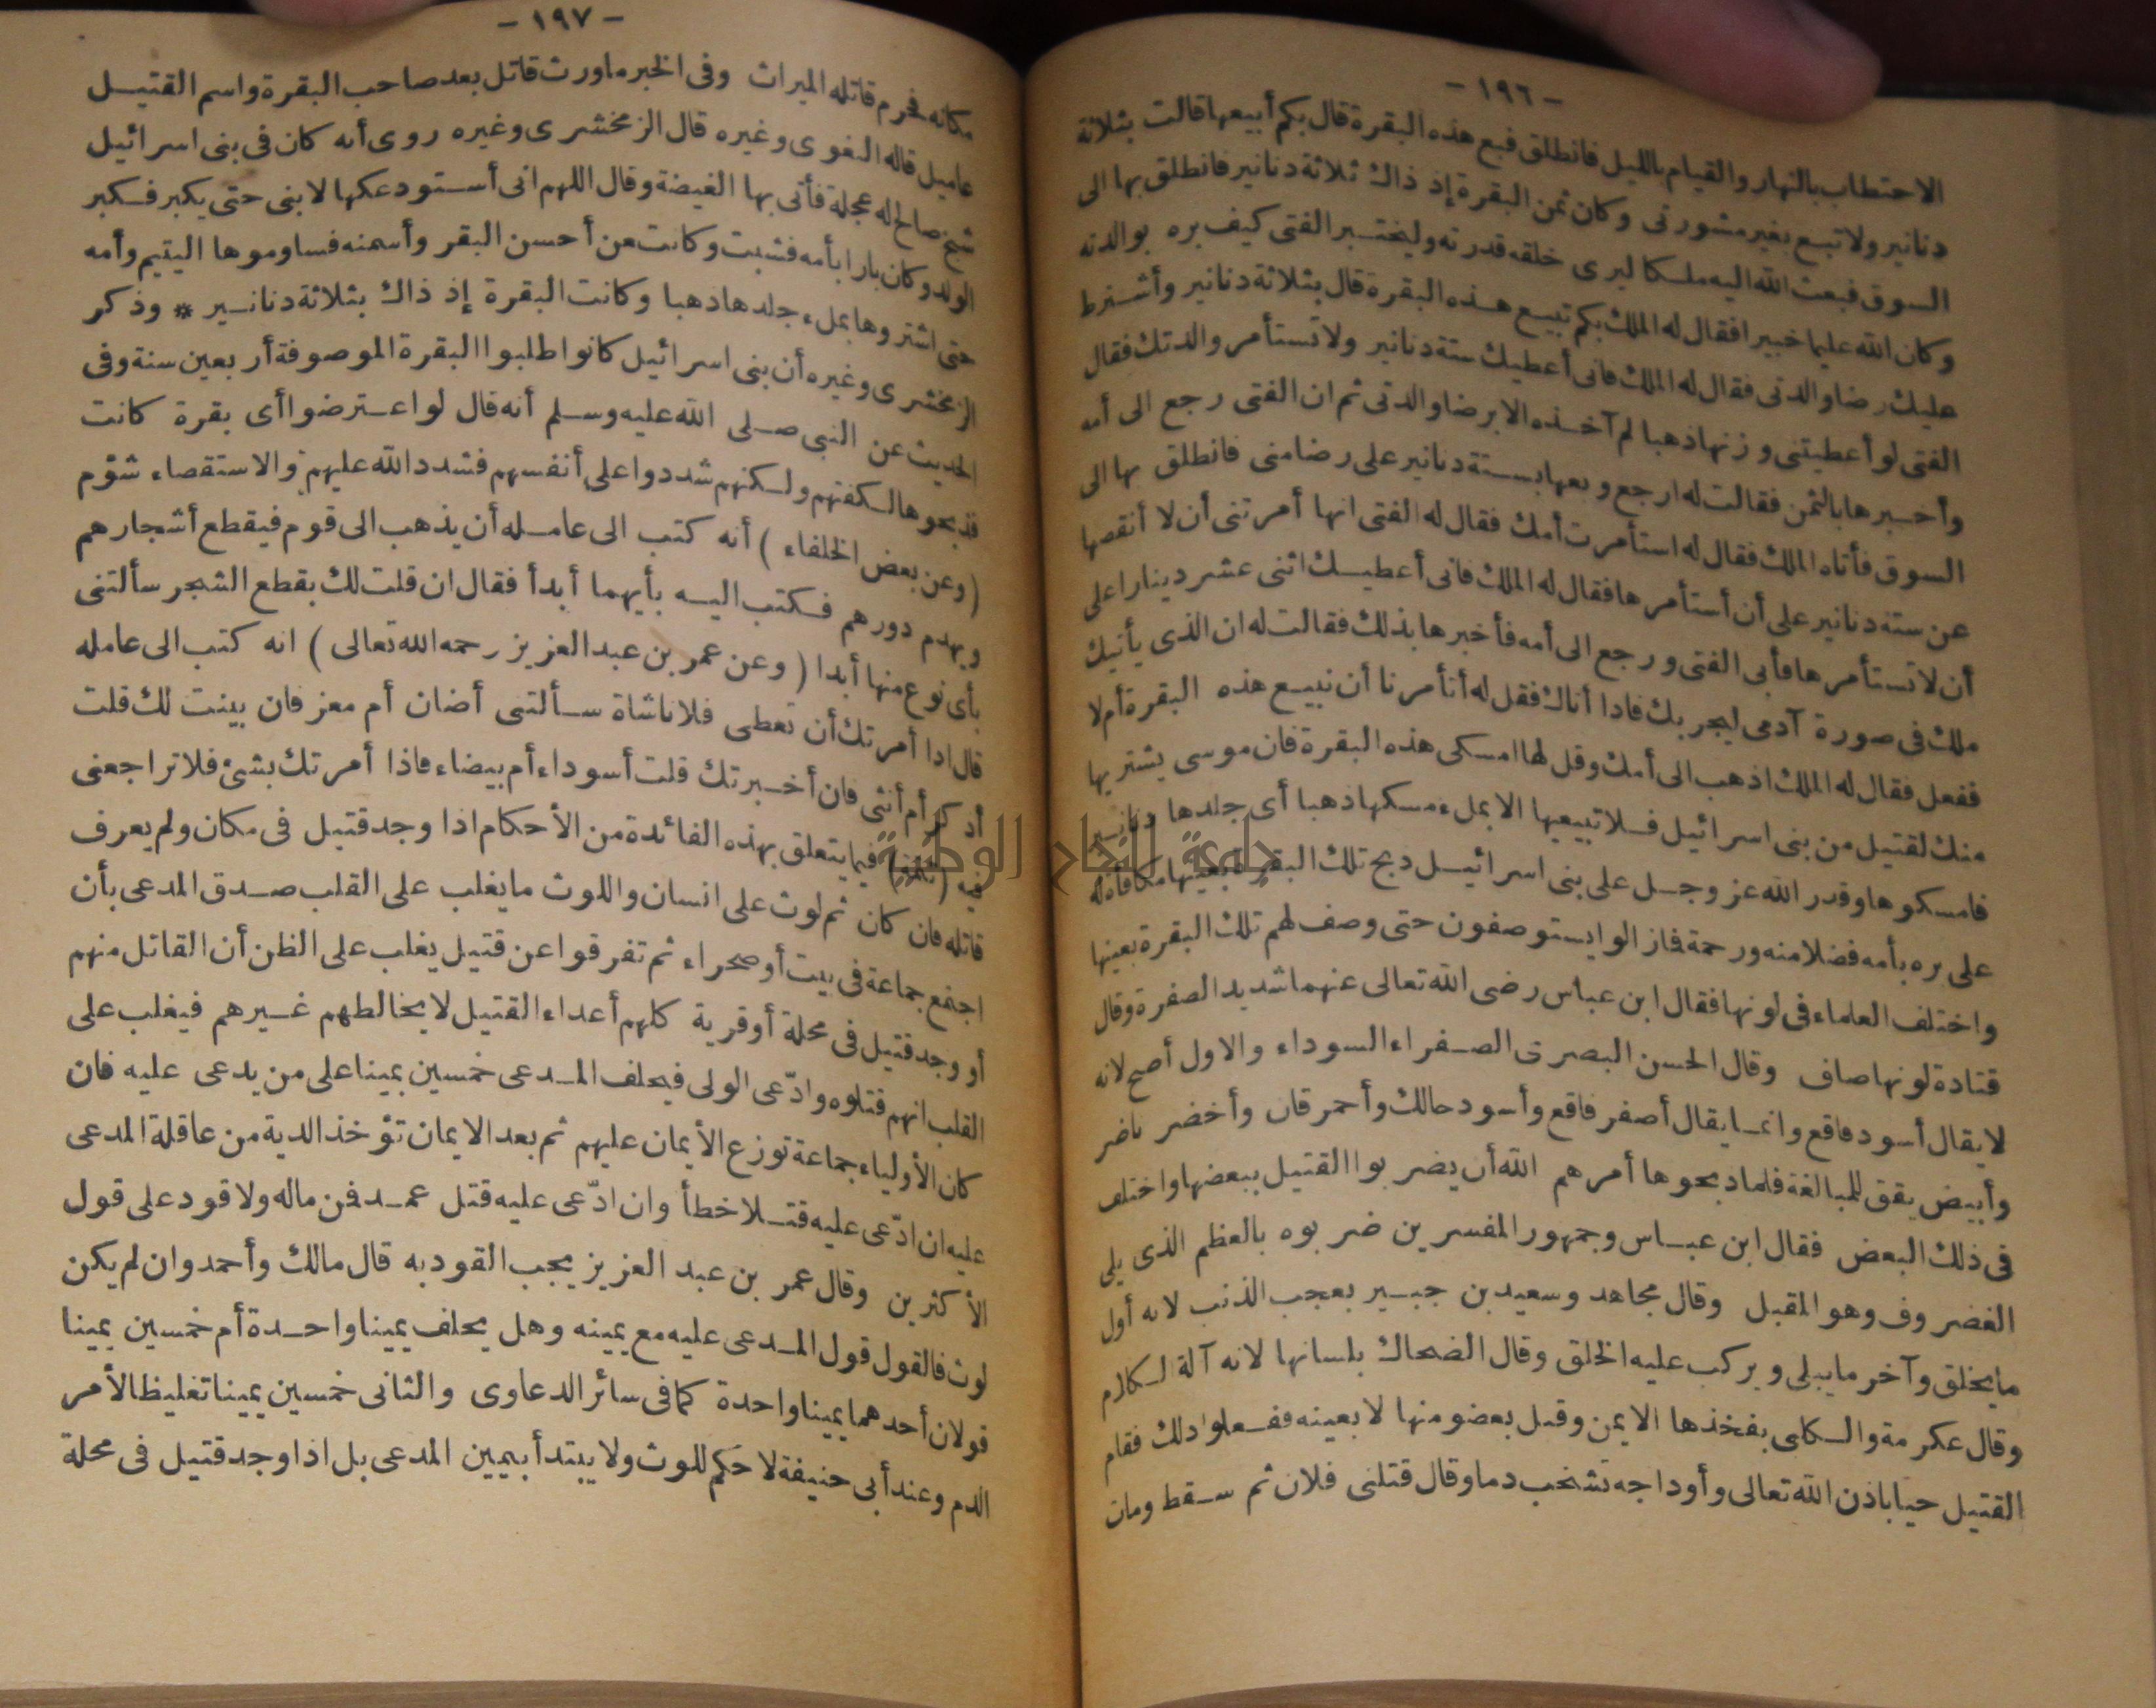 - ١٩٦ -
الاحتطاب بالنهار والقيام بالليل فانطلق فبع هذه البقرة قال بكم أبيعها قالت بثلاثة
دنانير ولا تبع بغير مشورتى وكان ثمن البقرة إذ ذاك ثلاثة دنانير فانطلق بها الى
السوق فبعث الله اليه ملكا ليرى خلقه قدرته وليختبر الفتى كيف بره بوالدته
وكان الله عليما خبيرا فقال له الملك بكم تبيع هذه البقرة قال بثلاثة دنانير وأشترط
عليك رضا والدتى فقال له الملك فانى أعطيك ستة دنانير ولا تستأمر والدتك فقال
الفتى لو أعطيتنى وزنها ذهبا لم آخذه الا برضا والدتى ثم ان الفتى رجع الى أمه
وأخبرها بالثمن فقالت له ارجع وبعها بستة دنانير على رضا منى فانطلق بها الى
السوق فأتاه الملك فقال له استأمرت أمك فقال له الفتى انها أمرتنى أن لا أنقصها
عن ستة دنانير على أن أستأمرها فقال له الملك فانى أعطيك اثنى عشر دينارا على
أن لا تستأمرها فأبى الفتى ورجع الى أمه فأخبرها بذلك فقالت له ان الذى يأتيك
ملك فى صورة آدمى ليجربك فاذا أتاك فقل له أتأمرنا أن نبيع هذه البقرة أم لا
ففعل فقال له الملك اذهب الى أمك وقل لها امسكى هذه البقرة فان موسى يشتريها
منك لقتيل من بنى اسرائيل فلا تبيعيها الا بملء مسكها ذهبا أى جلدها دنانير
فامسكوها وقدر الله عز وجل على بنى اسرائيل ذبح تلك البقرة بعينها مكافأة له
على بره بأمه فضلا منه ورحمة فمازالوا يستوصفون حتى وصف لهم تلك البقرة بعينها
واختلف العلماء فى لونها فقال ابن عباس رضى الله تعالى عنهما شديد الصفرة وقال
قتادة لونها صاف وقال الحسن البصرى الصفراء السوداء والاول أصح لانه
لا يقال أسود فاقع وانما يقال أصفر فاقع وأسود حالك وأحمر قان وأخضر ناضر
وأبيض يقق للمبالغة فلما ذبحوها أمرهم الله أن يضربوا القتيل ببعضها واختلف
فى ذلك البعض فقال ابن عباس وجمهور المفسرين ضربوه بالعظم الذى يلى
الغضروف وهو المقبل وقال مجاهد وسعيد بن جبير بعجب الذنب لانه أول
ما يخلق وآخر ما يبلى ويركب عليه الخلق وقال الضحاك بلسانها لانه آلة الكلام
وقال عكرمة والكلبى بفخذها الايمن وقيل بعضو منها لا بعينه ففعلوا ذلك فقام
القتيل حيا باذن الله تعالى وأوداجه تشخب دما وقال قتلنى فلان ثم سقط ومات
- ١٩٧ -
مكانه فحرم قاتله الميراث وفى الخبر ما ورث قاتل بعد صاحب البقرة واسم القتيل
عاميل قاله البغوى وغيره قال الزمخشرى وغيره روى أنه كان فى بنى اسرائيل
شيخ صالح له عجلة فأتى بها الغيضة وقال اللهم انى أستودعكها لابنى حتى يكبر فكبر
الولد وكان بارا بأمه فشبت وكانت من أحسن البقر وأسمنه فساوموها اليتيم وأمه
حتى اشتروها بملء جلدها ذهبا وكانت البقرة إذ ذاك بثلاثة دنانير * وذكر
الزمخشرى وغيره أن بنى اسرائيل كانوا طلبوا البقرة الموصوفة أربعين سنة وفى
الحديث عن النبى صلى الله عليه وسلم أنه قال لو اعترضوا أى بقرة كانت
فذبحوها لكفتهم ولكنهم شددوا على أنفسهم فشدد الله عليهم والاستقصاء شؤم
(وعن بعض الخلفاء) أنه كتب الى عامله أن يذهب الى قوم فيقطع أشجارهم
ويهدم دورهم فكتب اليه بأيهما أبدأ فقال ان قلت لك بقطع الشجر سألتنى
بأى نوع منها أبدا (وعن عمر بن عبد العزيز رحمه الله تعالى) انه كتب الى عامله
قال اذا أمرتك أن تعطى فلانا شاة سألتنى أضان أم معز فان بينت لك قلت
أذكر أم أنثى فان أخبرتك قلت أسوداء أم بيضاء فاذا أمرتك بشئ فلا تراجعنى
فيه (تتمة) فيما يتعلق بهذه الفائدة من الأحكام اذا وجد قتيل فى مكان ولم يعرف
قاتله فان كان ثم لوث على انسان واللوث ما يغلب على القلب صدق المدعى بأن
اجتمع جماعة فى بيت أو صحراء ثم تفرقوا عن قتيل يغلب على الظن أن القاتل منهم
أو وجد قتيل فى محلة أو قرية كلهم أعداء القتيل لا يخالطهم غيرهم فيغلب على
القلب انهم قتلوه وادّعى الولى فيحلف المدعى خمسين يمينا على من يدعى عليه فان
كان الأولياء جماعة توزع الأيمان عليهم ثم بعد الايمان تؤخذ الدية من عاقلة المدعى
عليه ان ادّعى عليه قتلا خطأ وان ادّعى عليه قتل عمد فمن ماله ولا قود على قول
الأكثرين وقال عمر بن عبد العزيز يجب القود به قال مالك وأحمد وان لم يكن
لوث فالقول قول المدعى عليه مع يمينه وهل يحلف يمينا واحدة أم خمسين يمينا
قولان أحدهما يمينا واحدة كما فى سائر الدعاوى والثانى خمسين يمينا تغليظا لأمر
الدم وعند أبى حنيفة لا حكم للوث ولا يبتدأ بيمين المدعى بل اذا وجد قتيل فى محلة
جامعة النجاح الوطنية